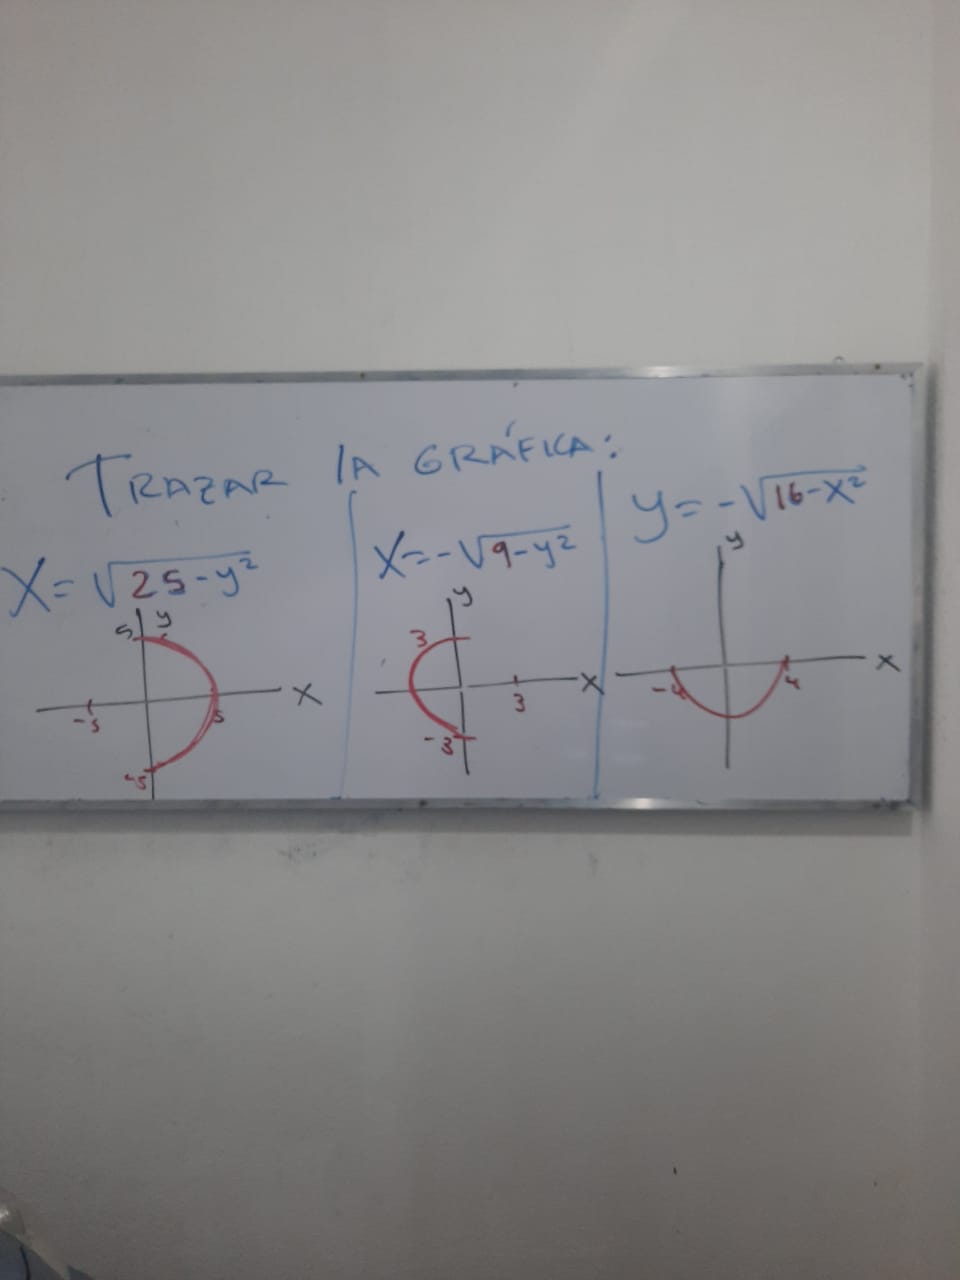 TRAZAR lA GRÁFICA:
X=√25-y²
5
y
X
-5
5
-5
X=-√9-y²
y
3
X
3
-3
y=-√16-X²
y
X
-4
4